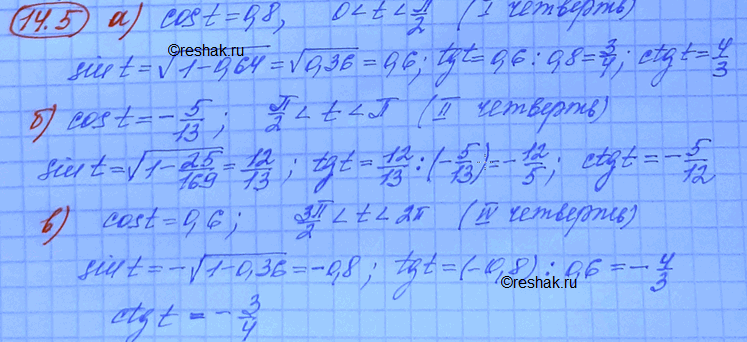 14.5 а) cos t = 0,8, 0 < t < π/2 (I четверть)
©reshak.ru
sin t = √(1-0,64) = √0,36 = 0,6; tg t = 0,6 : 0,8 = 3/4; ctg t = 4/3
б) cos t = -5/13; π/2 < t < π (II четверть)
sin t = √(1-25/169) = 12/13; tg t = 12/13 : (-5/13) = -12/5; ctg t = -5/12
в) cos t = 0,6; 3π/2 < t < 2π (IV четверть)
sin t = -√(1-0,36) = -0,8; tg t = (-0,8) : 0,6 = -4/3
©reshak.ru
ctg t = -3/4